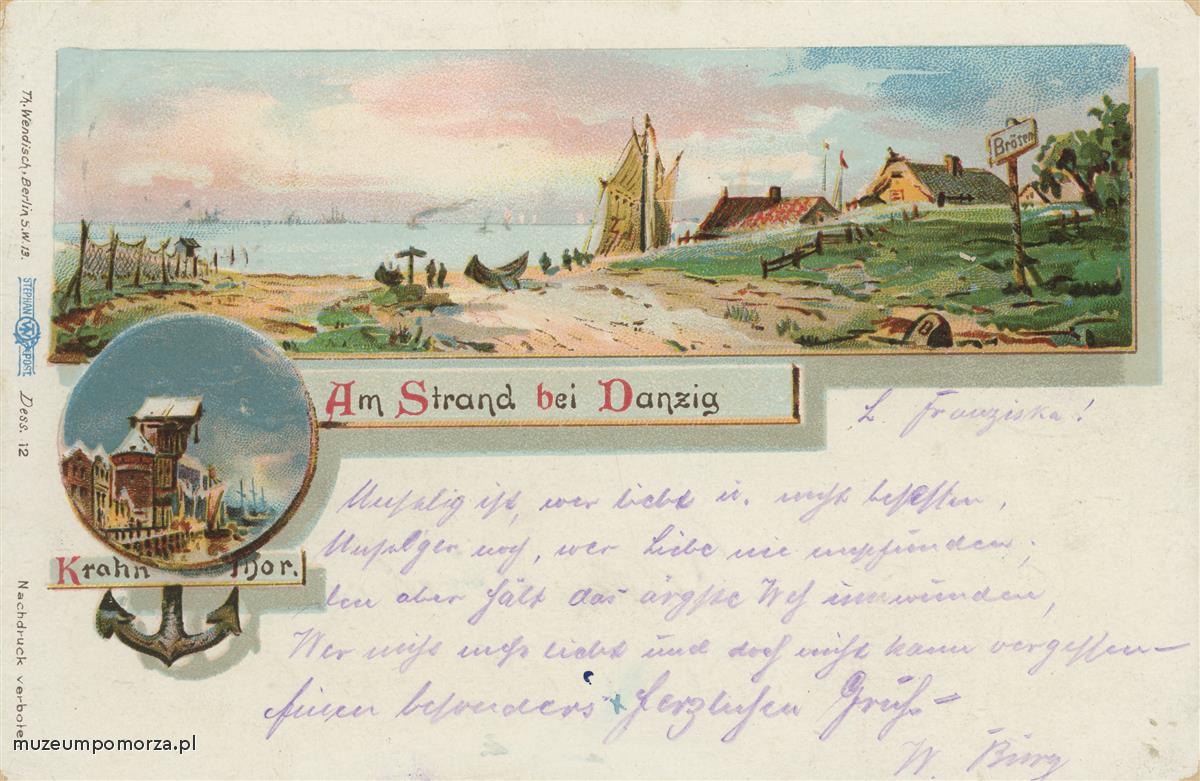 Th. Wendisch, Berlin S.W. 13.
STEPHAN
W
POST.
Dess. 12
Nachdruck verboten
Brösen
Am Strand bei Danzig
Krahn Thor.
L. Franziska!
Unselig ist, wer liebt u. nicht besessen,
Unselger noch, wer Liebe nie empfunden;
den aber hält das ärgste Weh umwunden,
Wer nicht mehr liebt und doch nicht kann vergessen—
Einen besonders herzlichen Gruß=
W. Burg
muzeumpomorza.pl